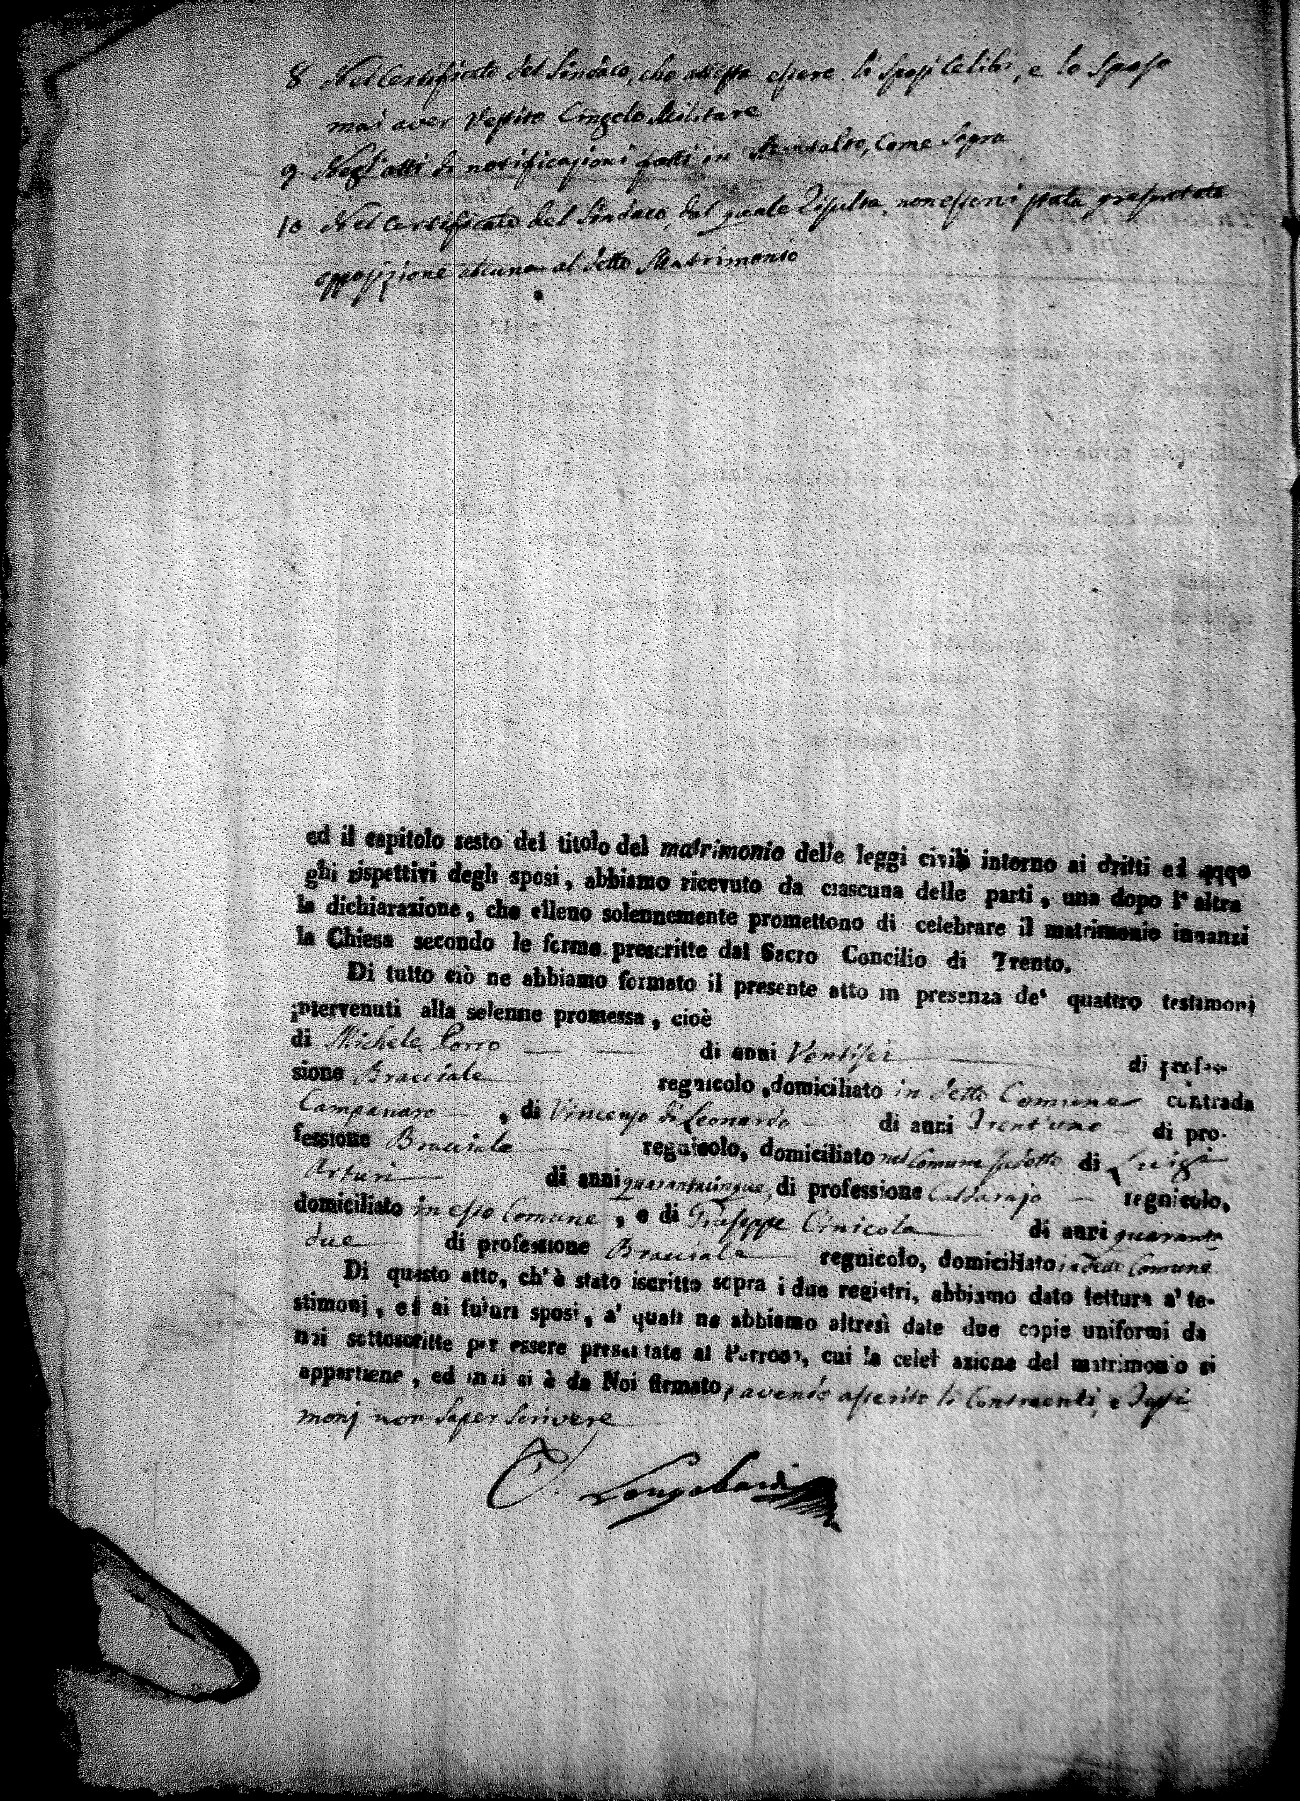 8 Nel Certificato del Sindaco, che attesta essere li sposi Celibi, e lo Sposo
mai aver Vestito Cingolo Militare
9 Negli atti di notificazioni fatti in Montalto, Come Sopra
10 Nel Certificato del Sindaco, dal quale Risulta, non esservi stata presentata
opposizione alcuna al detto Matrimonio
ed il capitolo sesto del titolo del matrimonio delle leggi civili intorno ai dritti ed
ghi rispettivi degli sposi, abbiamo ricevuto da ciascuna delle parti, una dopo l' altra
la dichiarazione, che elleno solennemente promettono di celebrare il matrimonio innanzi
la Chiesa secondo le forme prescritte dal Sacro Concilio di Trento.
Di tutto ciò ne abbiamo formato il presente atto in presenza de' quattro testimonj
intervenuti alla solenne promessa, cioè
di Michele Porro di anni Ventisei di profes-
sione Bracciale regnicolo, domiciliato in detto Comune contrada
Campanaro, di Vincenzo di Leonardo di anni Trent'uno di pro-
fessione Bracciale regnicolo, domiciliato nel Comune sudetto di Luigi
Arturi di anni quarantacinque, di professione regnicolo,
domiciliato in esso Comune, e di Giuseppe Cinicola di anni quaranta
due di professione Bracciale regnicolo, domiciliato in detto Comune
Di questo atto, ch' è stato iscritto sopra i due registri, abbiamo dato lettura a' te-
stimonj, ed ai futuri sposi, a' quali ne abbiamo altresì date due copie uniformi da
noi sottoscritte per essere presentate al Parroco, cui la celebrazione del matrimonio si
appartiene, ed indi si è da Noi firmato, avendo asserito li Contraenti, e Testi
monj non saper scrivere
Longobardi